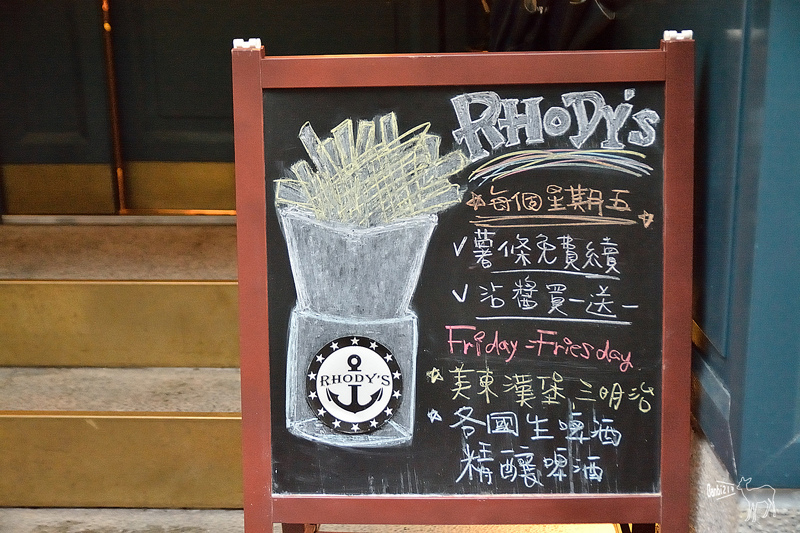 RHODY'S
每個星期五
薯條免費續
沾醬買一送一
Friday = Friesday
美東漢堡 三明治
各國生啤酒
精釀啤酒
RHODY'S